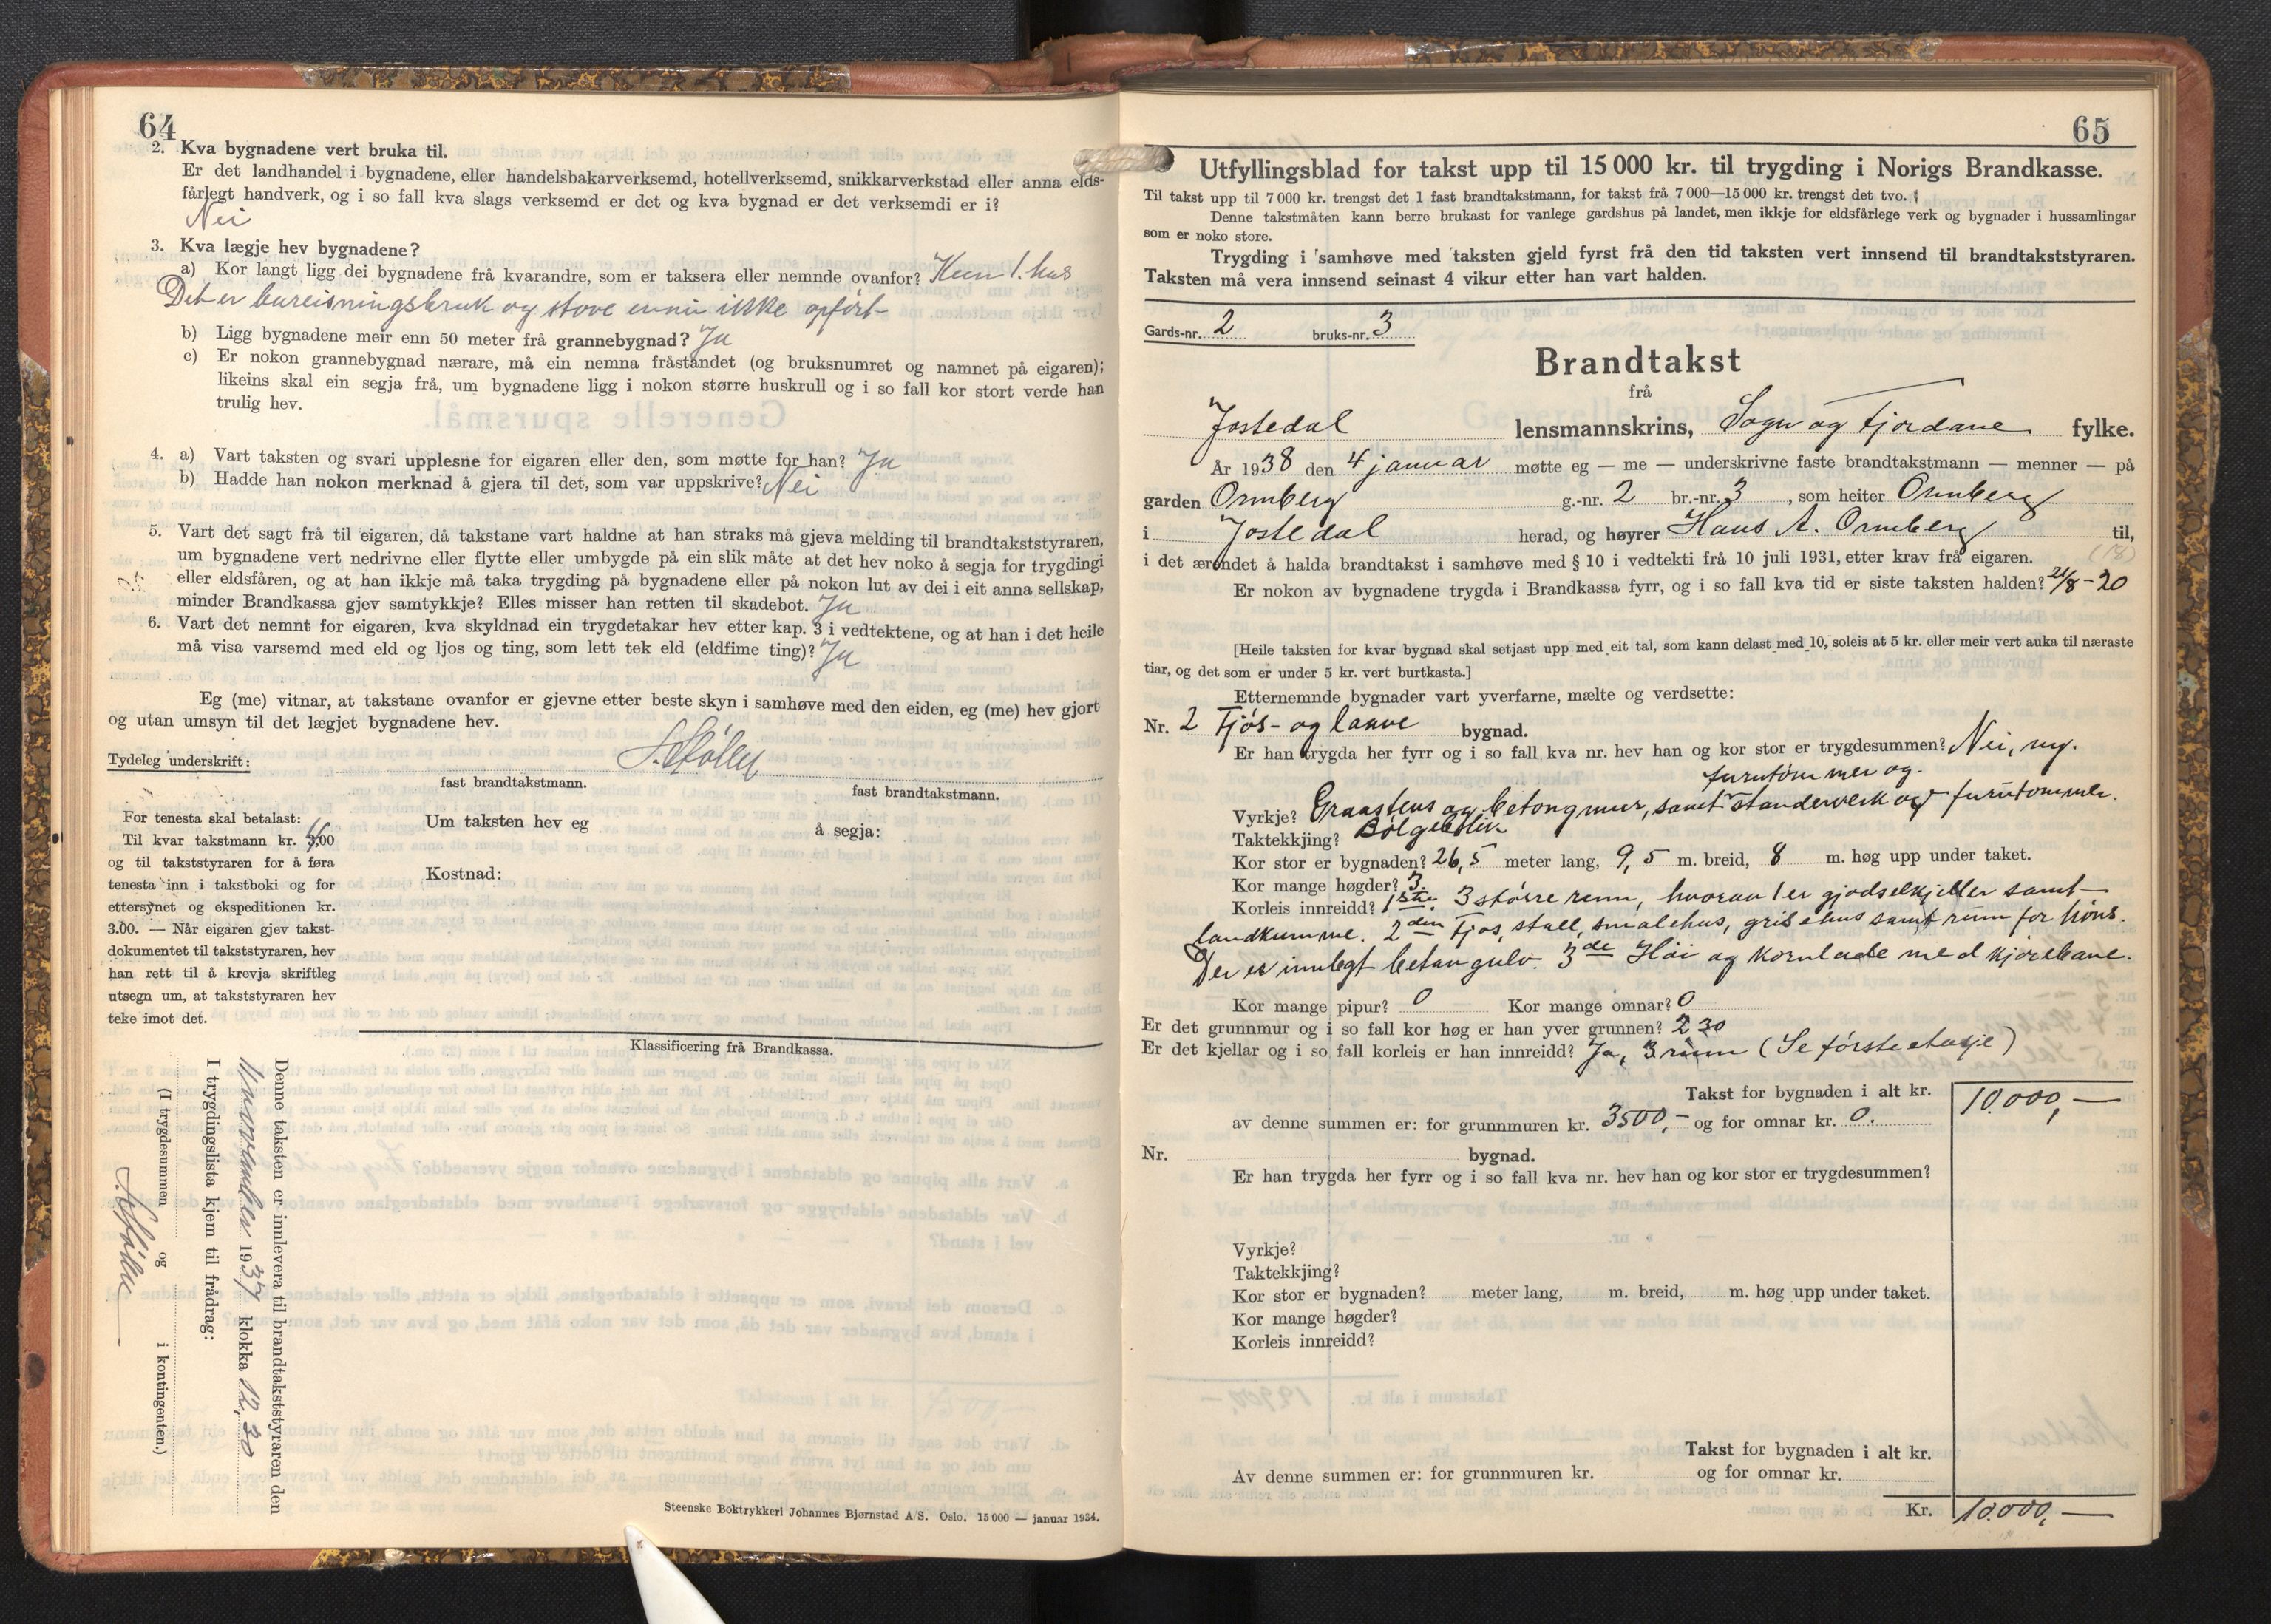 64
2. Kva bygnadene vert bruka til.
Er det landhandel i bygnadene, eller handelsbakarverksemd, hotellverksemd, snikkarverkstad eller anna elds-
fårlegt handverk, og i so fall kva slags verksemd er det og kva bygnad er det verksemdi er i?
Nei
3. Kva lægje hev bygnadene?
a) Kor langt ligg dei bygnadene frå kvarandre, som er taksera eller nemnde ovanfor? Kun 1. hus
Det er bureisningsbruk og stove ennu ikke opført
b) Ligg bygnadene meir enn 50 meter frå grannebygnad? Ja
c) Er nokon grannebygnad nærare, må ein nemna fråstandet (og bruksnumret og namnet på eigaren);
likeins skal ein segja frå, um bygnadene ligg i nokon større huskrull og i so fall kor stort verde han
trulig hev.
4. a) Vart taksten og svari upplesne for eigaren eller den, som møtte for han? Ja
b) Hadde han nokon merknad å gjera til det, som var uppskrive? Nei
5. Vart det sagt frå til eigaren, då takstane vart haldne at han straks må gjeva melding til brandtakststyraren,
um bygnadene vert nedrivne eller flytte eller umbygde på ein slik måte at det hev noko å segja for trygdingi
eller eldsfåren, og at han ikkje må taka trygding på bygnadene eller på nokon lut av dei i eit anna sellskap,
minder Brandkassa gjev samtykkje? Elles misser han retten til skadebot. Ja
6. Vart det nemnt for eigaren, kva skyldnad ein trygdetakar hev etter kap. 3 i vedtektene, og at han i det heile
må visa varsemd med eld og ljos og ting, som lett tek eld (eldfime ting)? Ja
Eg (me) vitnar, at takstane ovanfor er gjevne etter beste skyn i samhøve med den eiden, eg (me) hev gjort
og utan umsyn til det lægjet bygnadene hev.
Tydeleg underskrift:
fast brandtakstmann. fast brandtakstmann.
For tenesta skal betalast:
Til kvar takstmann kr. 3,00
og til takststyraren for å føra
tenesta inn i takstboki og for
ettersynet og ekspeditionen kr.
3.00. — Når eigaren gjev takst-
dokumentet til takststyraren, hev
han rett til å krevja skriftleg
utsegn um, at takststyraren hev
teke imot det.
Um taksten hev eg å segja:
Kostnad:
Klassificering frå Brandkassa.
Denne taksten er innlevera til brandtakststyraren den
11 november 1937 klokka 12,30
I trygdingslista kjem til frådrag:
(I trygdesummen og i kontingenten.)
Steenske Boktrykkeri Johannes Bjørnstad A/S. Oslo. 15 000 — januar 1934.
65
Utfyllingsblad for takst upp til 15 000 kr. til trygding i Norigs Brandkasse.
Til takst upp til 7 000 kr. trengst det 1 fast brandtakstmann, for takst frå 7 000—15 000 kr. trengst det tvo.
Denne takstmåten kann berre brukast for vanlege gardshus på landet, men ikkje for eldsfårlege verk og bygnader i hussamlingar
som er noko store.
Trygding i samhøve med taksten gjeld fyrst frå den tid taksten vert innsend til brandtakststyraren.
Taksten må vera innsend seinast 4 vikur etter han vart halden.
Gards-nr. 2 bruks-nr. 3
Brandtakst
frå
Jostedal lensmannskrins, Sogn og Fjordane fylke.
År 1938 den 4 januar møtte eg — me — underskrivne faste brandtakstmann — menner — på
garden Ormberg g.-nr. 2 br.-nr. 3, som heiter Ormberg
i Jostedal herad, og høyrer Hans A. Ormberg til,
i det ærendet å halda brandtakst i samhøve med § 10 i vedtekti frå 10 juli 1931, etter krav frå eigaren. (18)
Er nokon av bygnadene trygda i Brandkassa fyrr, og i so fall kva tid er siste taksten halden? 21/8-20
[Heile taksten for kvar bygnad skal setjast upp med eit tal, som kann delast med 10, soleis at 5 kr. eller meir vert auka til næraste
tiar, og det som er under 5 kr. vert burtkasta.]
Etternemnde bygnader vart yverfarne, mælte og verdsette:
Nr. 2 Fjøs- og laave bygnad.
Er han trygda her fyrr og i so fall kva nr. hev han og kor stor er trygdesummen? Nei, ny.
furutømmer og
Vyrkje? Graastens og betongmur, samt standerverk og furutømmer.
Taktekkjing? Bølgeblik
Kor stor er bygnaden? 26,5 meter lang, 9,5 m. breid, 8 m. høg upp under taket.
Kor mange høgder? 3.
Korleis innreidd? 1ste. 3 större rum, hvorav 1 er gjødselkjeller samt
landkumme. 2den Fjøs, stall, smalehus, grisehus samt rum for høns.
Der er innlegt betongulv. 3de Høi og kornlade med kjørebane.
Kor mange pipur? 0 Kor mange omnar? 0
Er det grunnmur og i so fall kor høg er han yver grunnen? 2 30
Er det kjellar og i so fall korleis er han innreidd? Ja, 3 rum (Se første etasje)
Takst for bygnaden i alt kr. 10.000,—
av denne summen er: for grunnmuren kr. 3500,- og for omnar kr. 0.
Nr. bygnad.
Er han trygda her fyrr og i so fall kva nr. hev han og kor stor er trygdesummen?
Vyrkje?
Taktekkjing?
Kor stor er bygnaden? meter lang, m. breid, m. høg upp under taket.
Kor mange høgder?
Korleis innreidd?
Takst for bygnaden i alt kr.
Av denne summen er: for grunnmuren kr. og for omnar kr.
Kr. 10.000,—